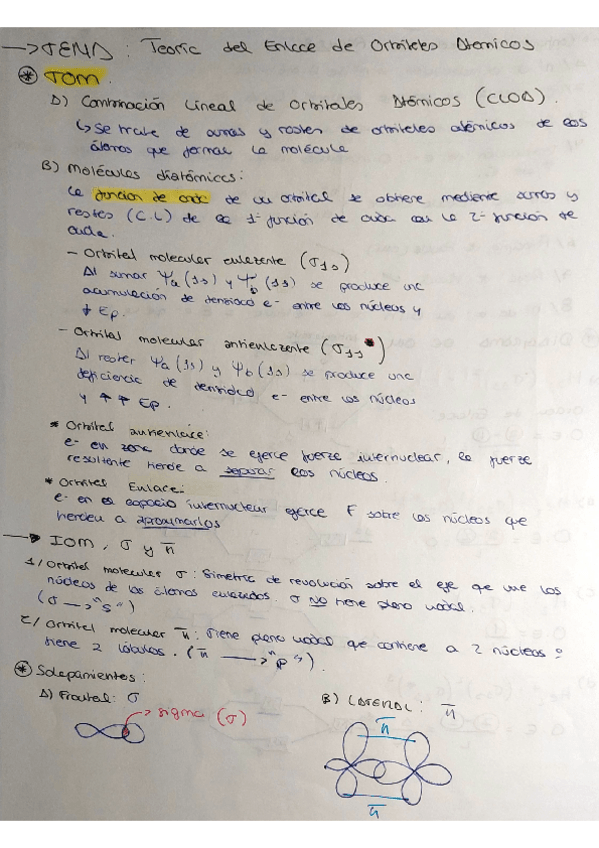 → TEMA: Teoría del Enlace de Orbitales Atómicos
* TOM.
A) Combinación Lineal de Orbitales Atómicos (CLOA).
↳ Se trata de sumas y restas de orbitales atómicos de los
átomos que forman la molécula
B) Moléculas diatómicas:
La función de onda de un orbital se obtiene mediante sumas y
restas (C.L) de la 1ª función de onda con la 2ª función de
onda.
- Orbital molecular enlazante (σ1s)
Al sumar Ψa (1s) y Ψb (1s) se produce una
acumulación de densidad e- entre los núcleos y
↓ Ep.
- Orbital molecular antienlazante (σ1s*)
Al restar Ψa (1s) y Ψb (1s) se produce una
deficiencia de densidad e- entre los núcleos
y ↑ ↑ Ep.
* Orbital antienlace:
e- en zona donde se ejerce fuerza internuclear, la fuerza
resultante tiende a separar los núcleos.
* Orbital Enlace:
e- en el espacio internuclear ejerce F sobre los núcleos que
tienden a aproximarlos
→ IOM, σ y π
1/ Orbital molecular σ: Simetría de revolución sobre el eje que une los
núcleos de los átomos enlazados. σ NO tiene plano nodal.
(σ → "s")
2/ Orbital molecular π: Tiene plano nodal que contiene a 2 núcleos o
tiene 2 lóbulos. (π → "p").
* Solapamientos:
A) Frontal: σ
B) LATERAL: π
→ sigma (σ)
π
π